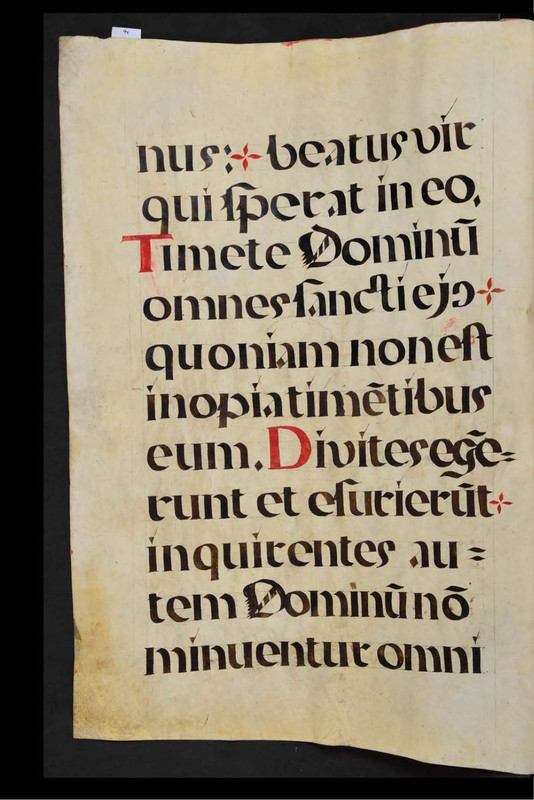 nus:✣ beatus vir
qui ſperat in eo.
Timete Dominū
omnes ſancti ejꝰ ✣
quoniam non eſt
inopia timētibus
eum. Divites egē-
runt et eſurierūt ✣
inquirentes au=
tem Dominū nō
minuentur omni